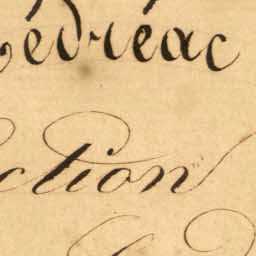 edréac
ction